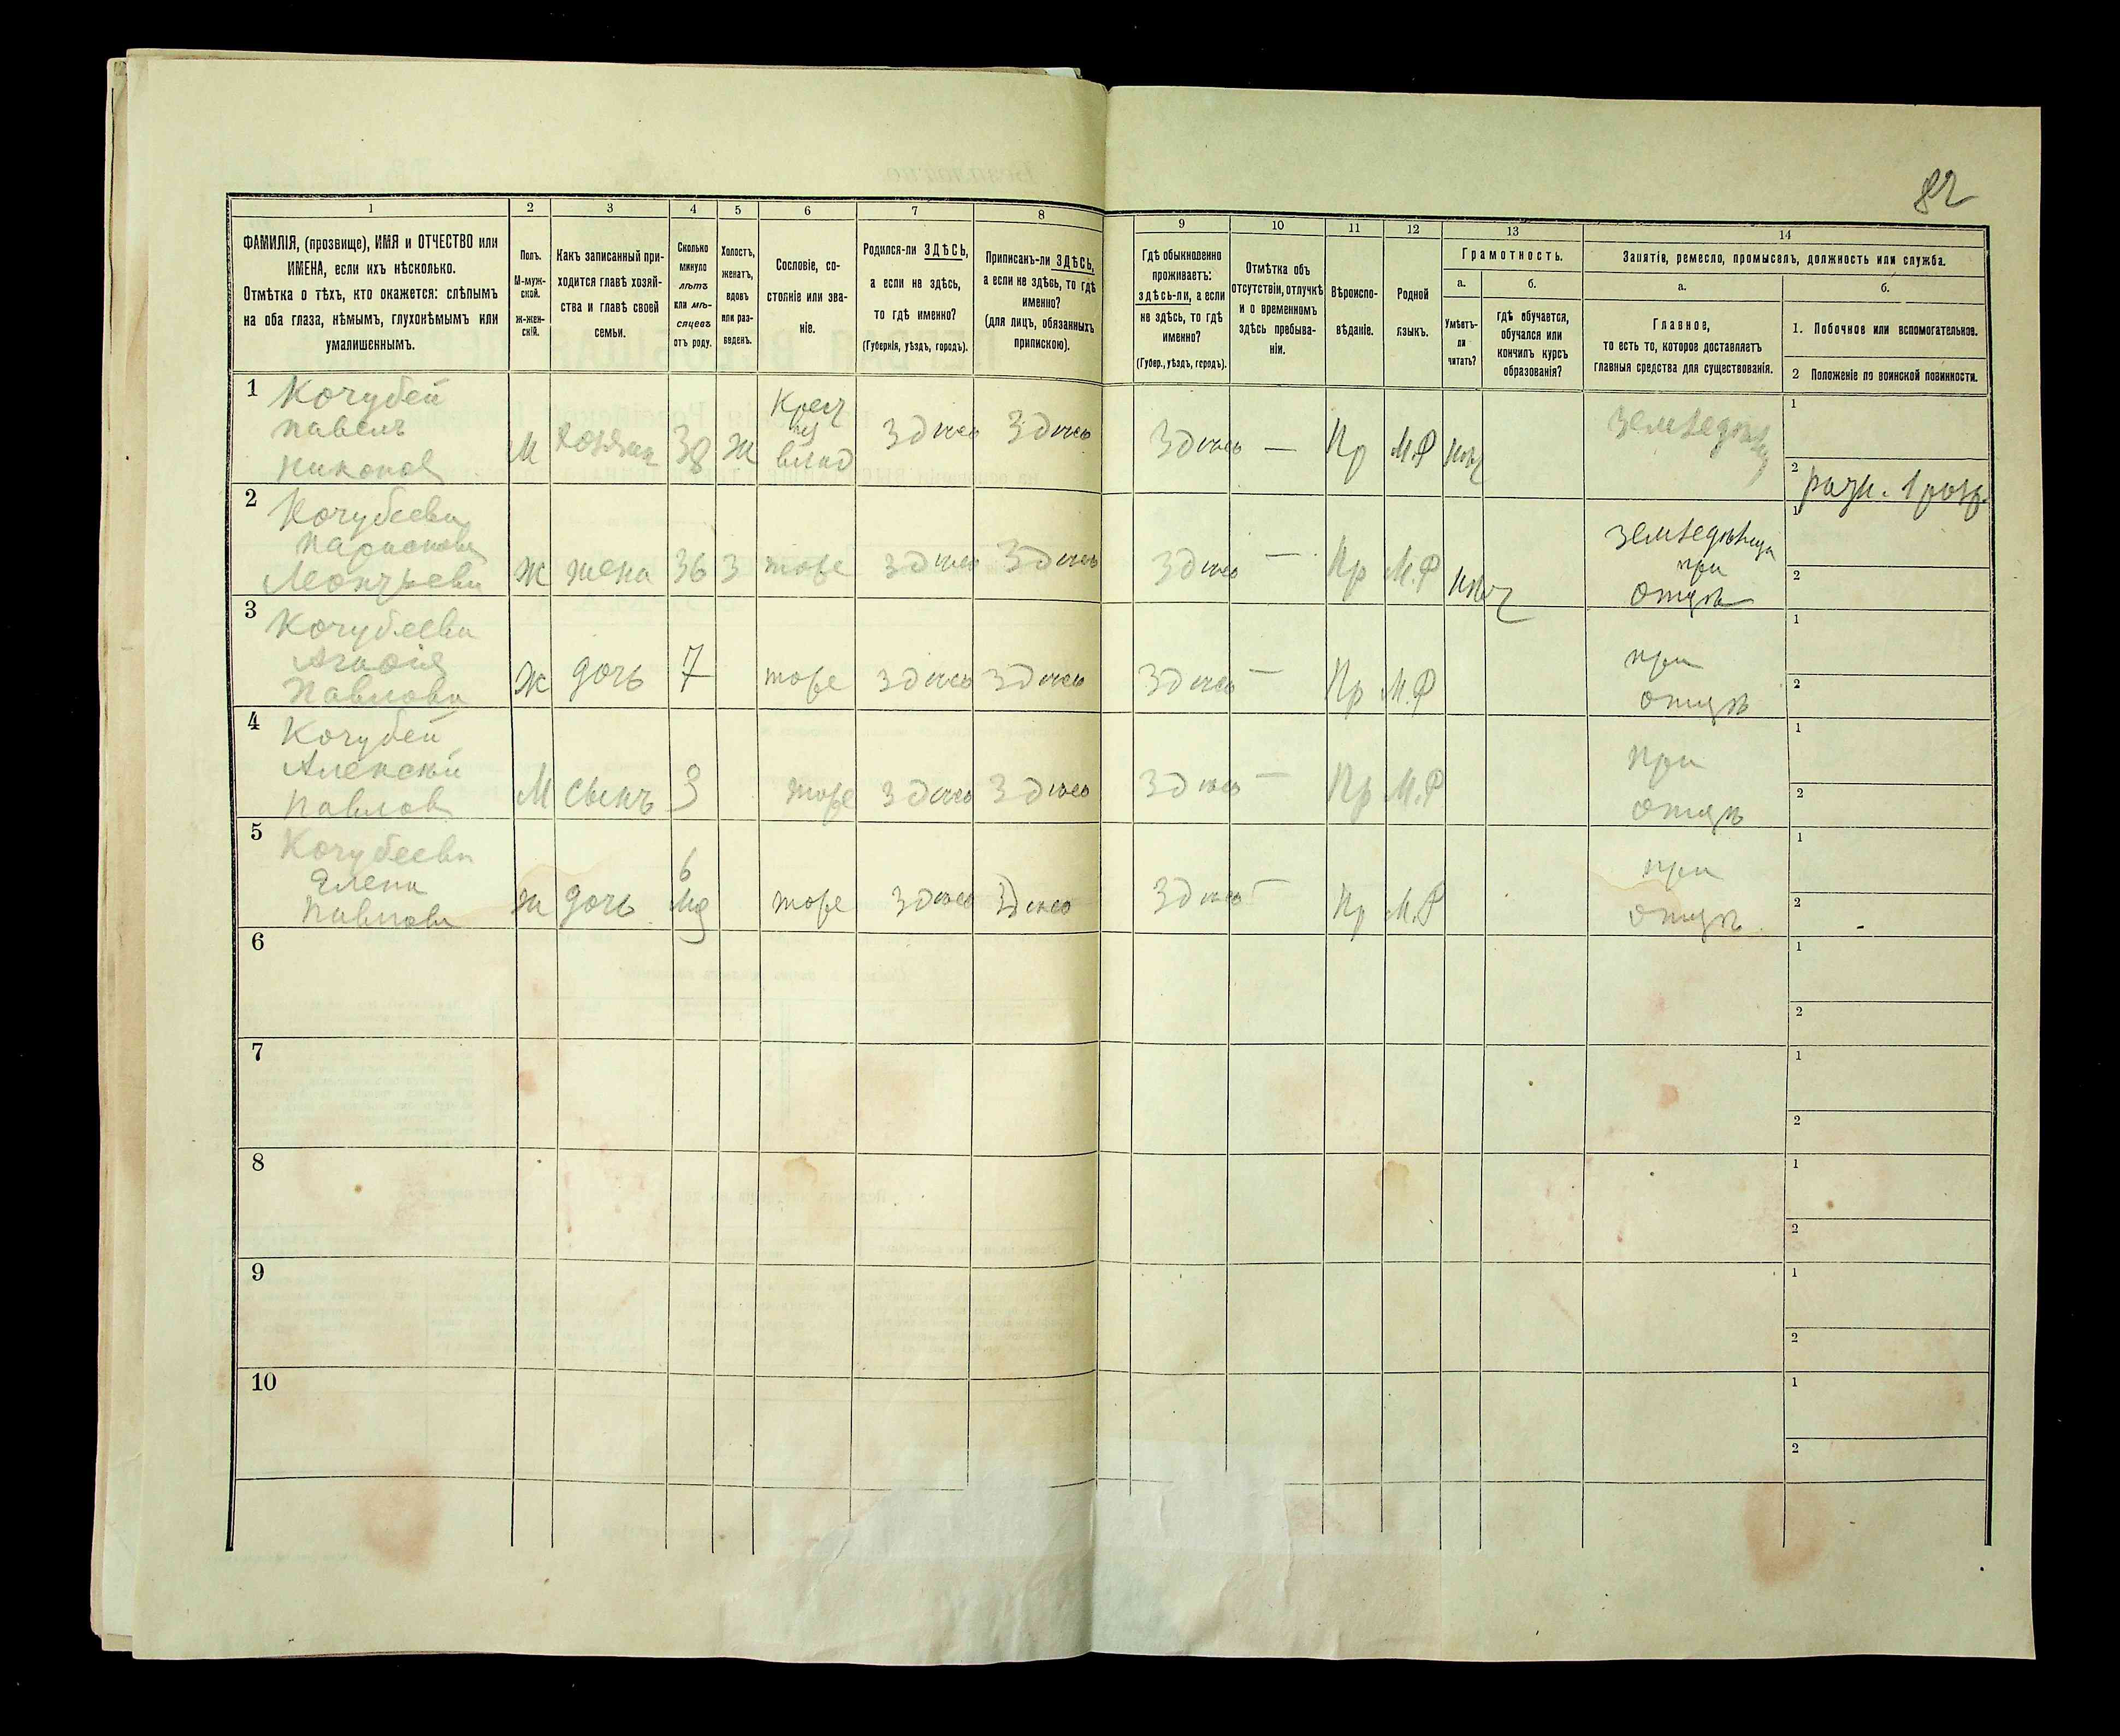 82
1 2 3 4 5 6 7 8 9 10 11 12 13 14
ФАМИЛІЯ, (прозвище), ИМЯ и ОТЧЕСТВО или
ИМЕНА, если ихъ нѣсколько.
Отмѣтка о тѣхъ, кто окажется: слѣпымъ
на оба глаза, нѣмымъ, глухонѣмымъ или
умалишеннымъ.
Полъ.
М-муж-
ской.
ж-жен-
скій.
Какъ записанный при-
ходится главѣ хозяй-
ства и главѣ своей
семьи.
Сколько
минуло
лѣтъ
или мѣ-
сяцевъ
отъ роду.
Холостъ,
женатъ,
вдовъ
или раз-
веденъ.
Сословіе, со-
стояніе или зва-
ніе.
Родился-ли ЗДѢСЬ,
а если не здѣсь,
то гдѣ именно?
(Губернія, уѣздъ, городъ).
Приписанъ-ли ЗДѢСЬ,
а если не здѣсь, то гдѣ
именно?
(для лицъ, обязанныхъ
припискою).
Гдѣ обыкновенно
проживаетъ:
здѣсь-ли, а если
не здѣсь, то гдѣ
именно?
(Губер., уѣздъ, городъ).
Отмѣтка объ
отсутствіи, отлучкѣ
и о временномъ
здѣсь пребыва-
ніи.
Вѣроиспо-
вѣданіе.
Родной
языкъ.
Грамотность.
а.
Умѣетъ-
ли
читать?
б.
гдѣ обучается,
обучался или
кончилъ курсъ
образованія?
Занятіе, ремесло, промыселъ, должность или служба.
а.
Главное,
то есть то, которое доставляетъ
главныя средства для существованія.
б.
1. Побочное или вспомогательное.
2 Положеніе по воинской повинности.
1 Кочубей
Павелъ
Никонов
М Хозяин 38 Ж
Крес
влад
Здѣсь Здѣсь Здѣсь — Пр М.Р нѣт
Земледѣлец
1
2
ратн. 1 разр.
2 Кочубеева
Леонтьева
Ж жена 36 З тоже Здѣсь Здѣсь Здѣсь — Пр М.Р нѣт
Земледѣлица
при
отцѣ
1
2
3 Кочубеева
Агафія
Павлова
Ж дочь 7 тоже Здѣсь Здѣсь Здѣсь — Пр М.Р
при
отцѣ
1
2
4 Кочубей
Алексѣй
Павлов
М сынъ 3 тоже Здѣсь Здѣсь Здѣсь — Пр М.Р
при
отцѣ
1
2
5 Кочубеева
Елена
Павлова
ж дочь 6
тоже Здѣсь Здѣсь Здѣсь — Пр М.Р
при
отцѣ
1
2
6
1
2
7
1
2
8
1
2
9
1
2
10
1
2